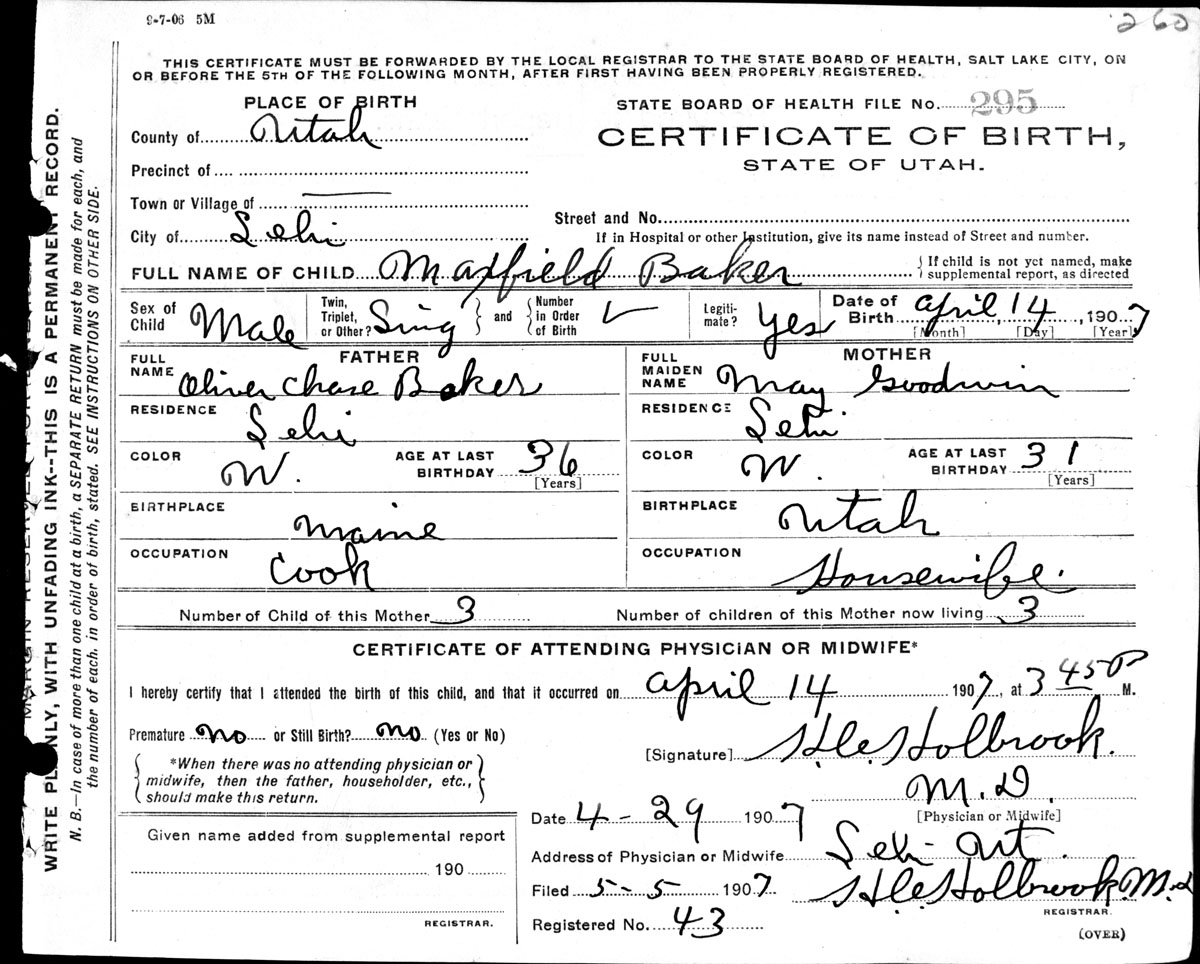 9-7-06 5M
260
THIS CERTIFICATE MUST BE FORWARDED BY THE LOCAL REGISTRAR TO THE STATE BOARD OF HEALTH, SALT LAKE CITY, ON
OR BEFORE THE 5TH OF THE FOLLOWING MONTH, AFTER FIRST HAVING BEEN PROPERLY REGISTERED.
PLACE OF BIRTH
STATE BOARD OF HEALTH FILE No. 295
County of Utah
CERTIFICATE OF BIRTH,
STATE OF UTAH.
Precinct of
Town or Village of
Street and No.
City of Lehi
If in Hospital or other Institution, give its name instead of Street and number.
FULL NAME OF CHILD Maxfield Baker
{ If child is not yet named, make
supplemental report, as directed
Sex of Child Male
Twin, Triplet, or Other? Sing } and { Number in Order of Birth
Legitimate? Yes
Date of Birth April 14, 1907
[Month] [Day] [Year]
FATHER
FULL NAME Oliver Chase Baker
MOTHER
FULL MAIDEN NAME May Goodwin
RESIDENCE Lehi
RESIDENCE Lehi
COLOR W. AGE AT LAST BIRTHDAY 36 [Years]
COLOR W. AGE AT LAST BIRTHDAY 31 [Years]
BIRTHPLACE Maine
BIRTHPLACE Utah
OCCUPATION Cook
OCCUPATION Housewife.
Number of Child of this Mother 3
Number of children of this Mother now living 3
CERTIFICATE OF ATTENDING PHYSICIAN OR MIDWIFE*
I hereby certify that I attended the birth of this child, and that it occurred on April 14 1907, at 3 45 P M.
Premature No or Still Birth? No (Yes or No)
[Signature] H.C. Holbrook.
M.D.
[Physician or Midwife]
{ *When there was no attending physician or
midwife, then the father, householder, etc.,
should make this return. }
Date 4-29 1907
Given name added from supplemental report
190
REGISTRAR.
Address of Physician or Midwife Lehi Ut.
Filed 5-5 1907 H.C. Holbrook M.D
REGISTRAR.
Registered No. 43
(OVER)
WRITE PLAINLY, WITH UNFADING INK--THIS IS A PERMANENT RECORD.
N. B.—In case of more than one child at a birth, a SEPARATE RETURN must be made for each, and
the number of each, in order of birth, stated. SEE INSTRUCTIONS ON OTHER SIDE.